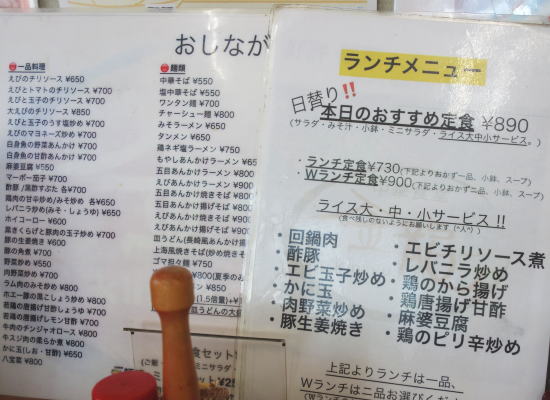 おしなが
一品料理
えびのチリソース ¥650
えびとトマトのチリソース ¥700
えびと玉子のチリソース ¥700
大えびのチリソース ¥850
えびと玉子のうす塩炒め ¥700
えびのマヨネーズ炒め ¥700
白身魚の野菜あんかけ ¥700
白身魚の甘酢あんかけ ¥700
麻婆豆腐 ¥550
マーボー茄子 ¥700
酢豚 /黒酢すぶた 各¥700
鶏肉の甘辛炒め 各¥650
レバニラ炒め(みそ・しょうゆ) ¥650
ホイコーロー ¥600
黒きくらげと豚肉の玉子炒め ¥700
豚の生姜焼き ¥600
豚の角煮 ¥700
野菜炒め ¥550
肉野菜炒め ¥700
ラム肉のみそ炒め ¥800
ホエー豚の黒こしょう炒め ¥800
若鶏の唐揚げしょうゆ甘酢 ¥700
若鶏の唐揚げレモン甘酢 ¥700
牛肉のチンジャオロース ¥800
牛スジ肉の柔らか煮 ¥800
かに玉(しお・甘酢) ¥650
八宝菜 ¥800
麺類
中華そば ¥550
塩中華そば ¥550
ワンタン麺 ¥700
チャーシュー麺 ¥800
みそラーメン ¥650
タンメン ¥650
鶏ネギ塩ラーメン ¥750
もやしあんかけラーメン ¥65
五目あんかけラーメン ¥800
五目あんかけ焼きそば
五目あんかけ揚げそば
えびあんかけラーメン
えびあんかけ焼きそば
えびあんかけ揚げそば
皿うどん(長崎風あんかけ揚
上海風焼きそば(炒め焼きそ
ゴマ担々麺 ¥750
¥800(夏季のみ
¥850
(1.5倍量)+¥1
皿うどんの大盛
食セット
ミニサラダ
ット ¥25
ランチメニュー
日替り!!
本日のおすすめ定食 ¥890
(サラダ・みそ汁・小鉢・ミニサラダ・ライス大中小サービス。)
・ランチ定食¥730(下記よりおかず一品、小鉢、スープ)
・Wランチ定食¥900(下記よりおかず二品、小鉢、スープ)
ライス大・中・小サービス !!
(食べ残しのないようにお願いします (^人^) )
・回鍋肉
・酢豚
・エビ玉子炒め
・かに玉
・肉野菜炒め
・豚生姜焼き
・エビチリソース煮
・レバニラ炒め
・鶏のから揚げ
・鶏唐揚げ甘酢
・麻婆豆腐
・鶏のピリ辛炒め
上記よりランチは一品、
Wランチは二品お選びくだ